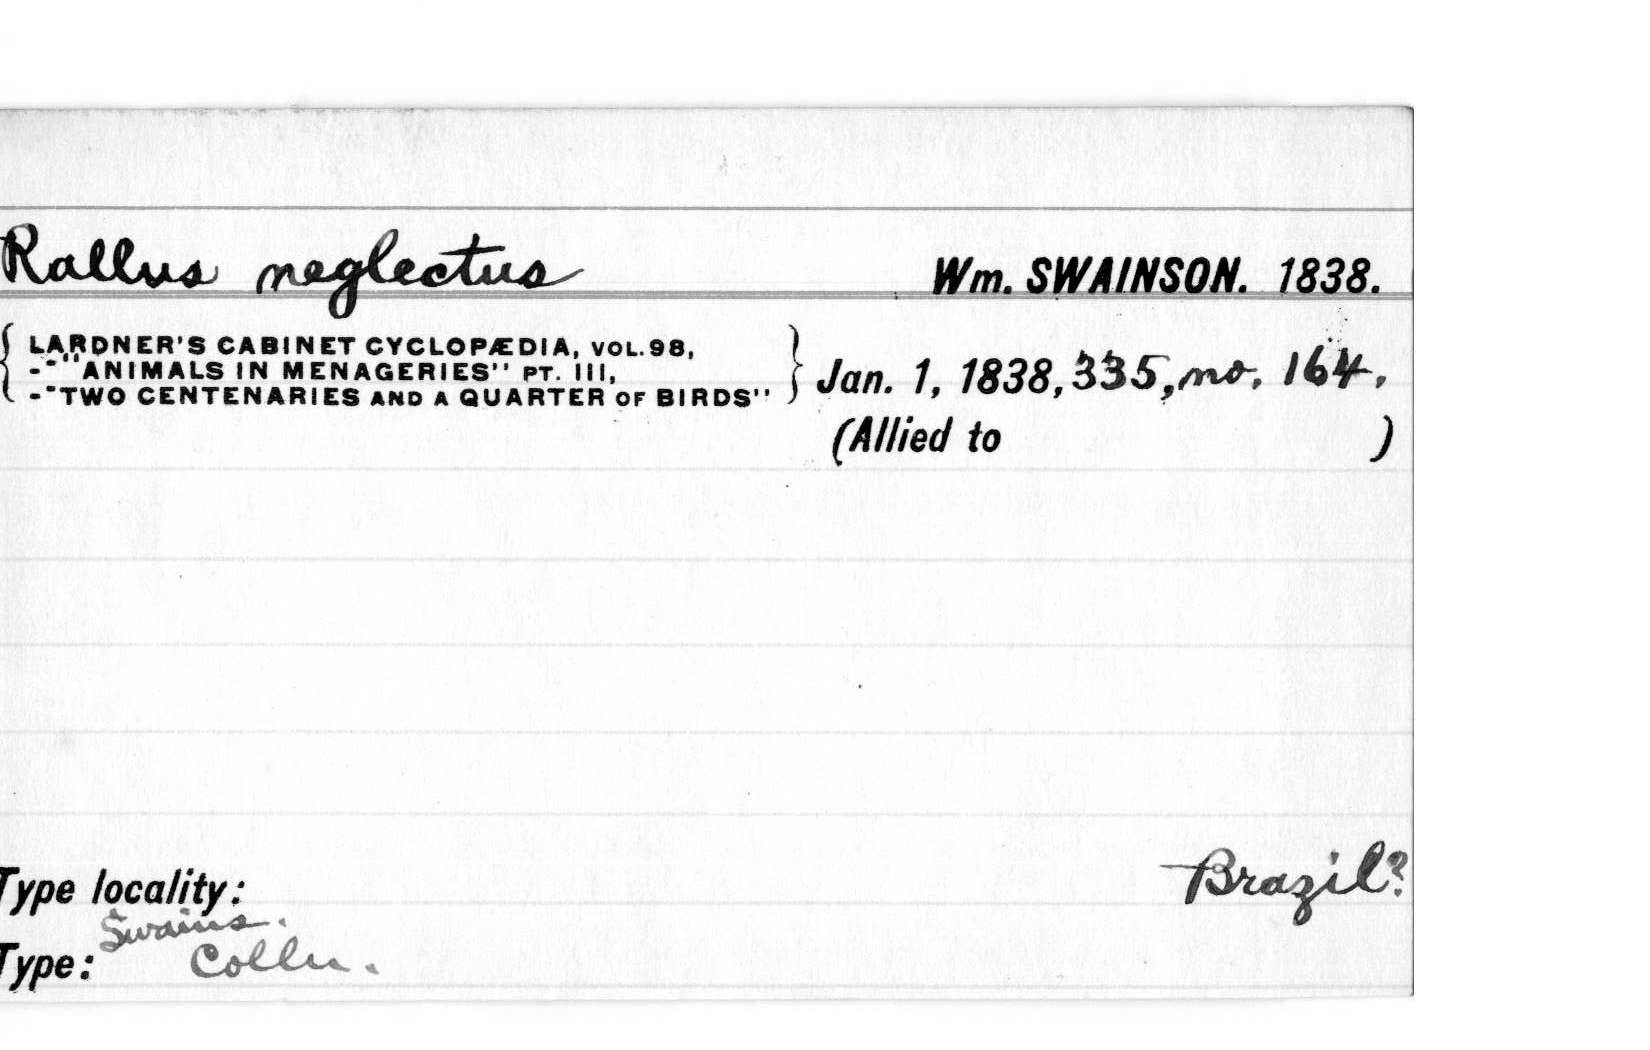 Rallus neglectus Wm. SWAINSON. 1838.
{ LARDNER'S CABINET CYCLOPÆDIA, VOL.98,
-"“ANIMALS IN MENAGERIES'' PT. III,
-"TWO CENTENARIES AND A QUARTER OF BIRDS'' } Jan. 1, 1838, 335, no. 164.
(Allied to )
Brazil?
Type locality:
Swains.
Type: Colln.